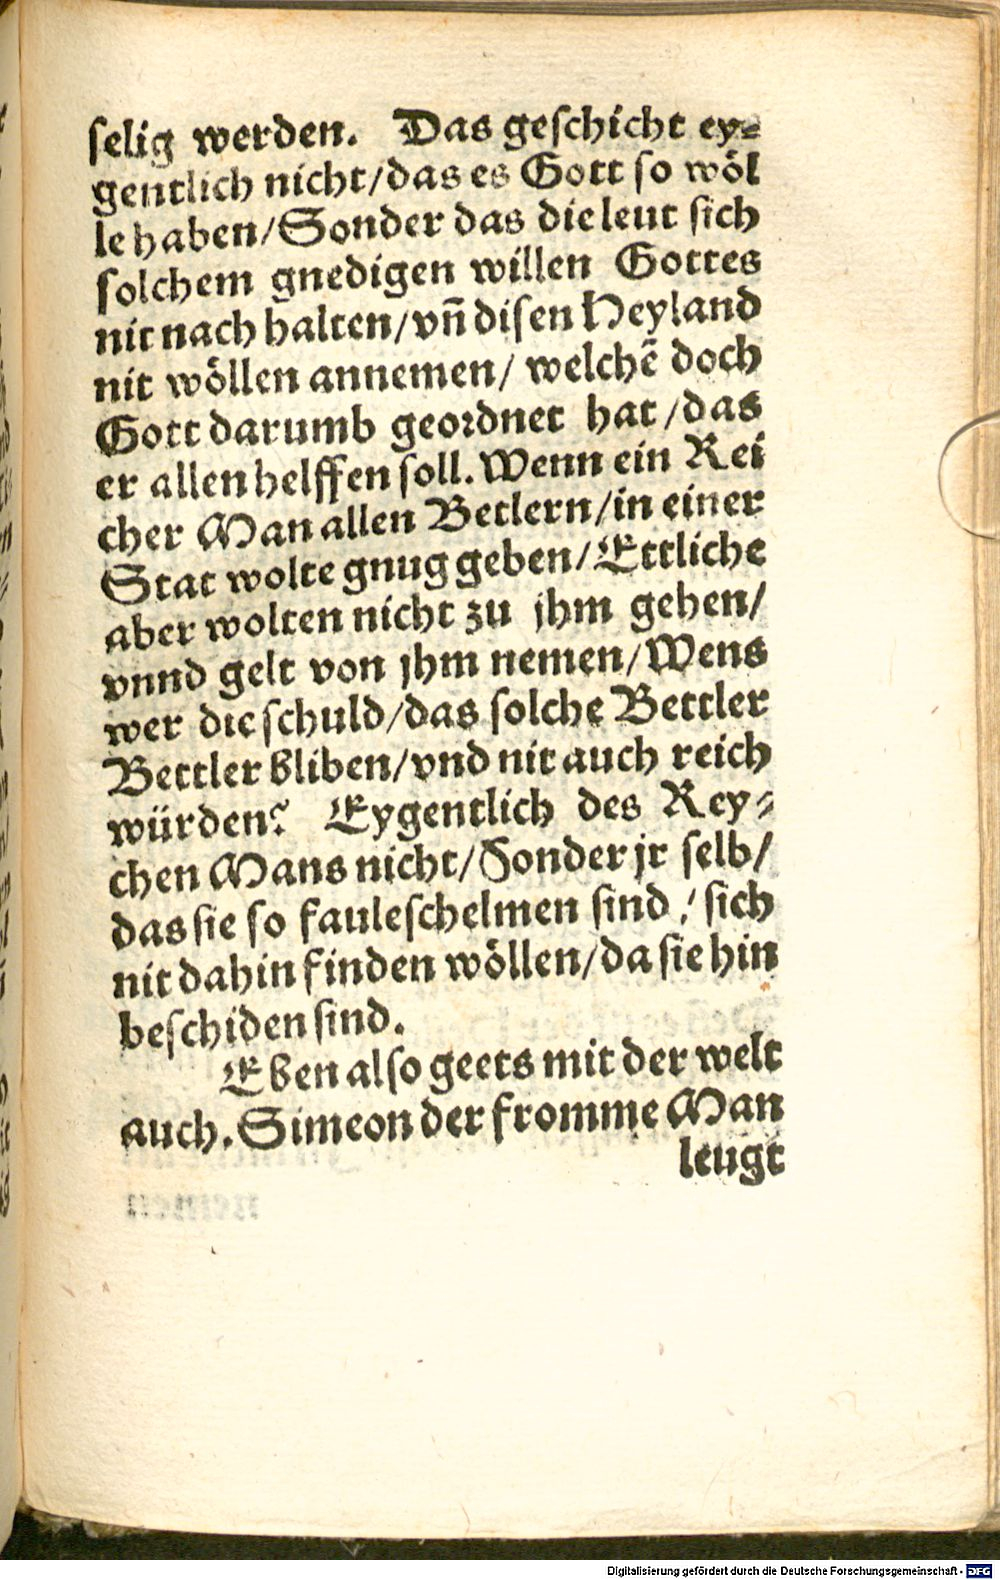 selig werden. Das geschicht ey⸗
gentlich nicht/das es Gott so wöl
le haben/Sonder das die leut sich
solchem gnedigen willen Gottes
nit nach halten/vñ disen Heyland
nit wöllen annemen/ welchē doch
Gott darumb geordnet hat/das
er allen helffen soll. Wenn ein Rei
cher Man allen Betlern/in einer
Stat wolte gnug geben/Ettliche
aber wolten nicht zu jhm gehen/
vnnd gelt von jhm nemen/Wens
wer die schuld/das solche Bettler
Bettler bliben/vnd nit auch reich
würden? Eygentlich des Rey⸗
chen Mans nicht/Sonder jr selb/
das sie so faule schelmen sind/ sich
nit dahin finden wöllen/da sie hin
beschiden sind.
Eben also geets mit der welt
auch. Simeon der fromme Man
leugt
Digitalisierung gefördert durch die Deutsche Forschungsgemeinschaft - DFG